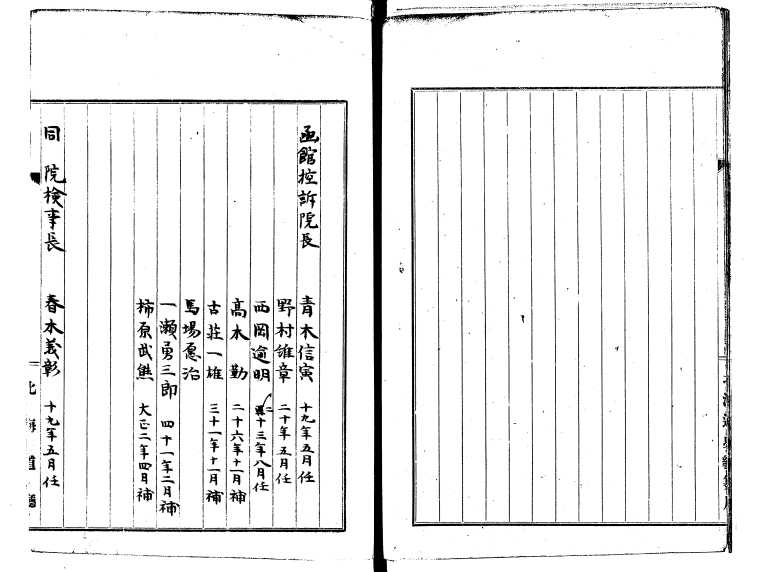 函館控訴院長
青木信寅 十九年五月任
野村維章 二十年五月任
西岡逾明 二十三年八月任
高木勤 二十六年十一月補
古荘一雄 三十一年十一月補
馬場愿治
一瀬勇三郎 四十一年二月補
柿原武熊 大正二年四月補
同院検事長
春木義彰 十九年五月任
北海道